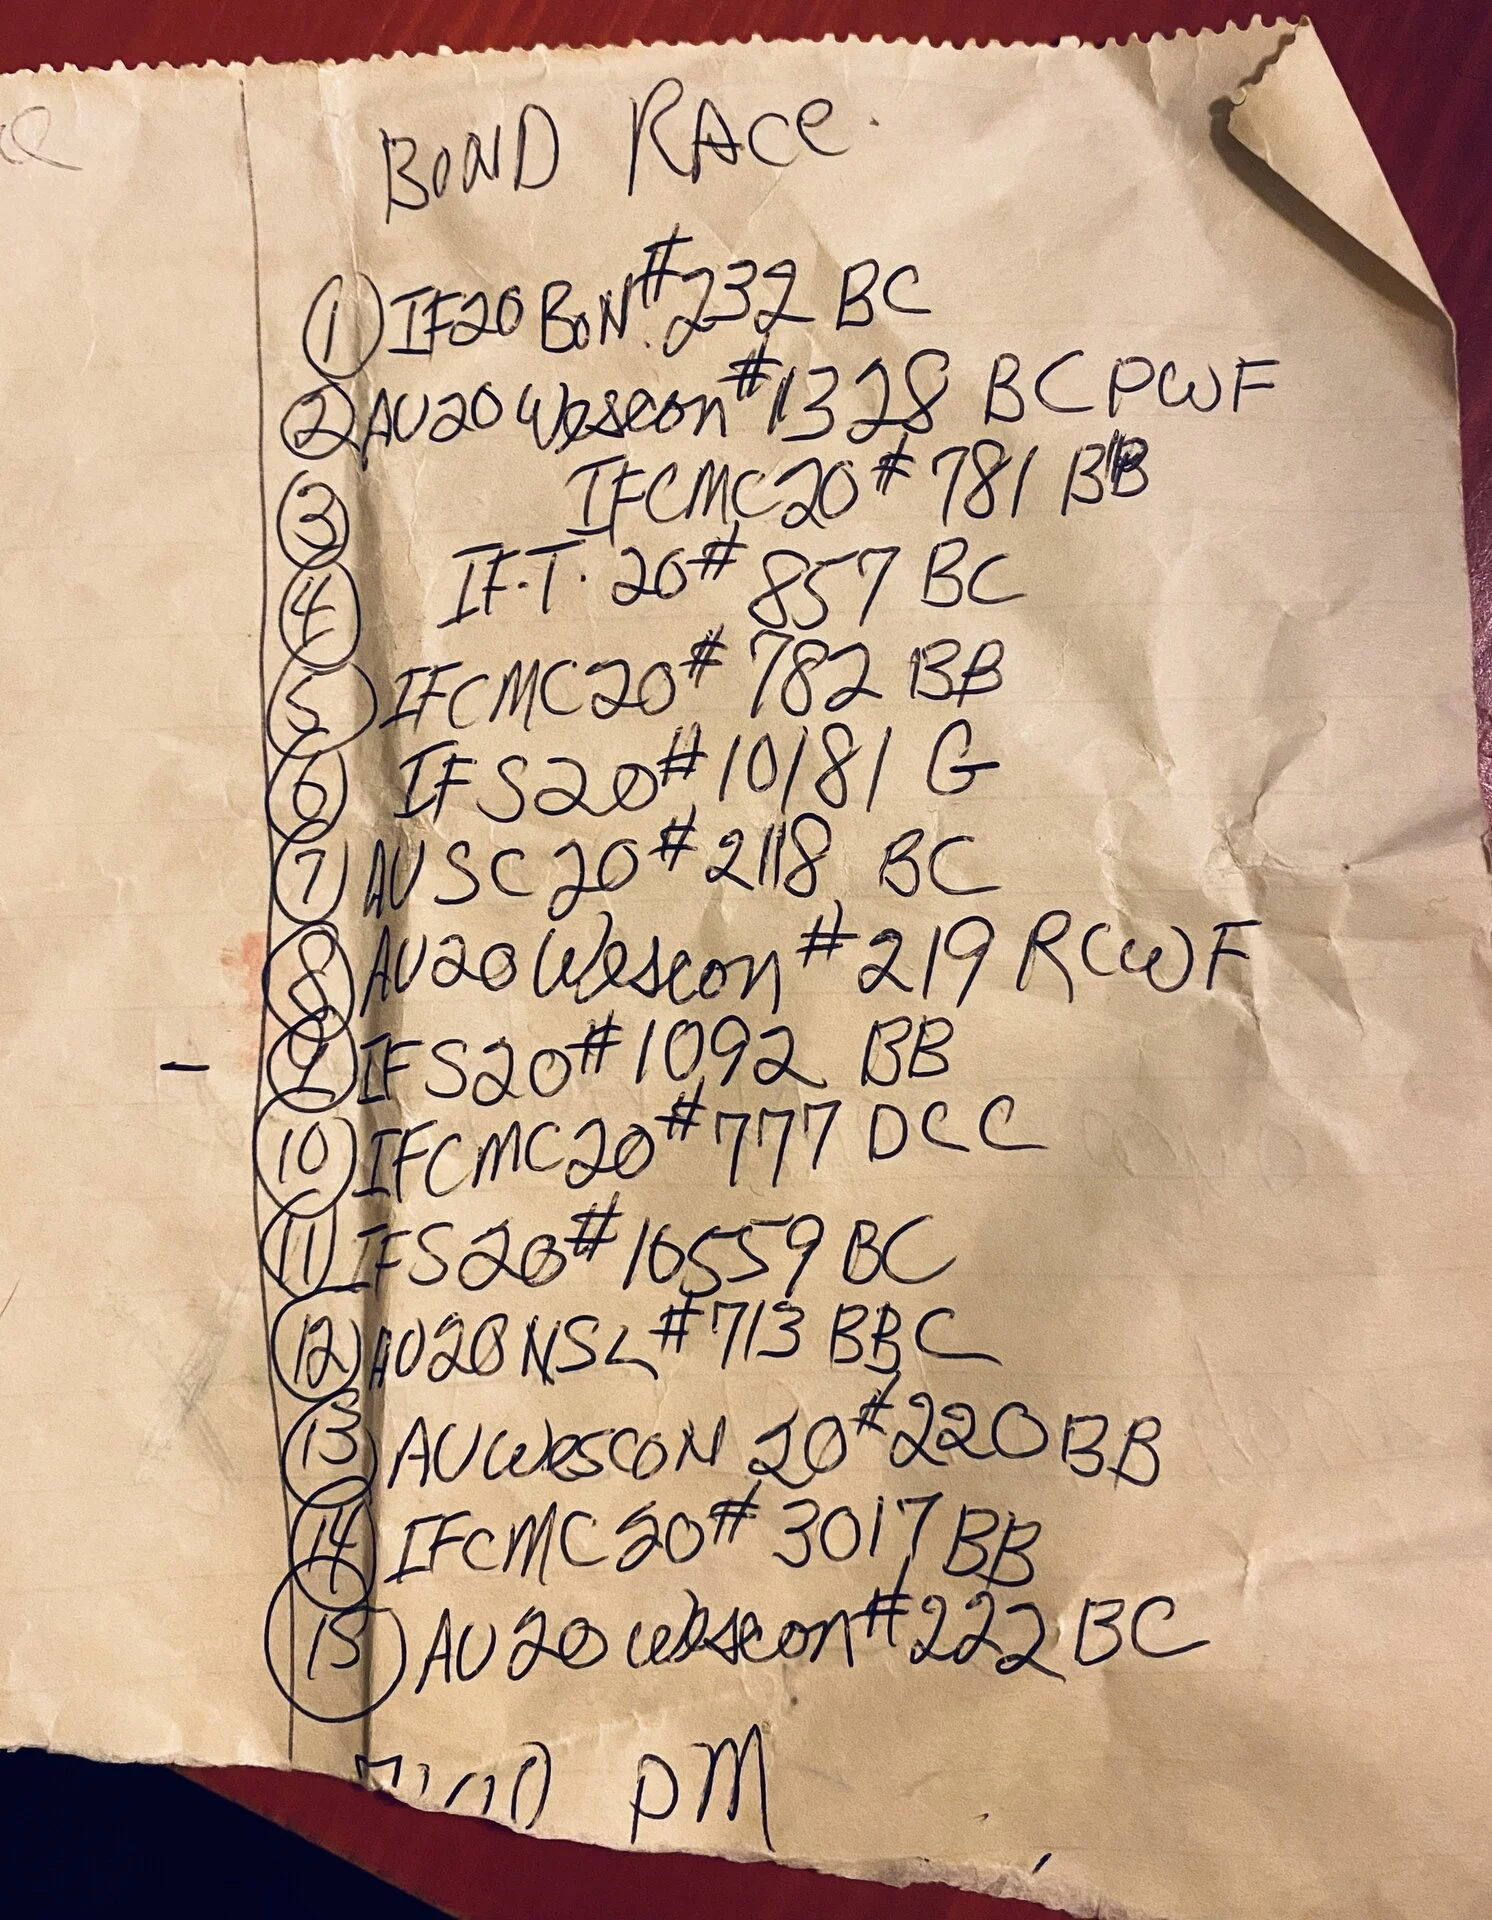 BOND RACE.
① IF20 BON. #232 BC
② AU20 Wescon #1328 BC PWF
③ IFCMC20 #781 BB
④ IF.T. 20 #857 BC
⑤ IFCMC20 #782 BB
⑥ IFS20 #10181 G
⑦ AUSC20 #2118 BC
⑧ AU20 Wescon #219 RCWF
⑨ IFS20 #1092 BB
⑩ IFCMC20 #777 DCC
⑪ IFS20 #10559 BC
⑫ AU20NSL #713 BBC
⑬ AUWESCON 20 #220 BB
⑭ IFCMC20 #3017 BB
⑮ AU20 Wescon #222 BC
PM